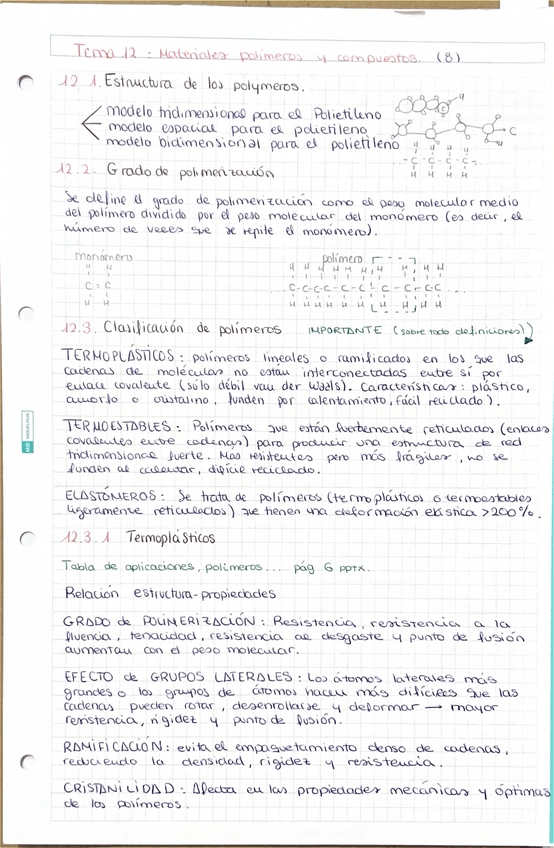 Tema 12 : Materiales polimeros y compuestos. (8)
12.1. Estructura de los polymeros.
modelo tridimensional para el Polietileno
modelo espacial para el polietileno
modelo bidimensional para el polietileno
12.2. Grado de polimerización
Se define el grado de polimerización como el peso molecular medio
del polímero dividido por el peso molecular del monómero (es decir, el
número de veces que se repite el monómero).
monómero
H H
C = C
H H
polímero
12.3. Clasificación de polímeros IMPORTANTE (sobre todo definiciones)
TERMOPLÁSTICOS : polímeros lineales o ramificados en los que las
cadenas de moléculas no están interconectadas entre sí por
enlace covalente (sólo débil van der Waals). Características : plástico,
amorfo o cristalino, funden por calentamiento, fácil reciclado).
TERMOESTABLES : Polímeros que están fuertemente reticulados (enlaces
covalentes entre cadenas) para producir una estructura de red
tridimensional fuerte. Mas resistentes pero más frágiles, no se
funden al calentar, difícil reciclado.
ELASTÓMEROS : Se trata de polímeros (termoplásticos o termoestables
ligeramente reticulados) que tienen una deformación elástica >200%.
12.3.1 Termoplásticos
Tabla de aplicaciones, polímeros... pág 6 pptx.
Relación estructura-propiedades
GRADO de POLIMERIZACIÓN : Resistencia, resistencia a la
fluencia, tenacidad, resistencia al desgaste y punto de fusión
aumentan con el peso molecular.
EFECTO de GRUPOS LATERALES : Los átomos laterales más
grandes o los grupos de átomos hacen más difíciles que las
cadenas pueden rotar, desenrollarse y deformar → mayor
resistencia, rigidez y punto de fusión.
RAMIFICACIÓN: evita el empaquetamiento denso de cadenas,
reduciendo la densidad, rigidez y resistencia.
CRISTANILIDAD : Afecta en las propiedades mecánicas y óptimas
de los polímeros.